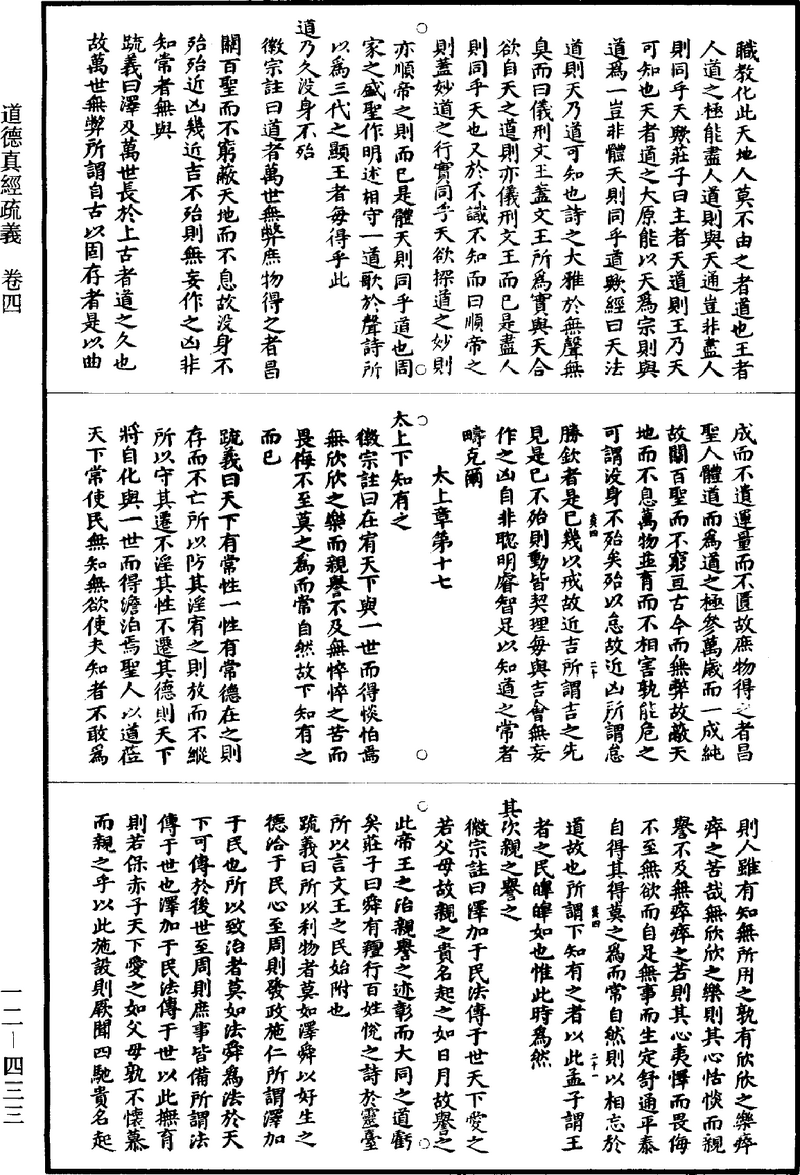 道德真經疏義　卷四
職教化此天地人莫不由之者道也王者
人道之極能盡人道則與天通豈非盡人
則同乎天歟莊子曰主者天道則王乃天
可知也天者道之大原能以天為宗則與
道為一豈非體天則同乎道歟經曰天法
道則天乃道可知也詩之大雅於無聲無
臭而曰儀刑文王蓋文王所為實與天合
欲自天之道則亦儀刑文王而已是盡人
則同乎天也又於不識不知而曰順帝之
則蓋妙道之行實同乎天欲探道之妙則
亦順帝之則而已是體天則同乎道也周
家之盛聖作明述相守一道歌於聲詩所
以為三代之顯王者每得乎此
道乃久没身不殆
徽宗註曰道者萬世無弊庶物得之者昌
關百聖而不窮蔽天地而不息故没身不
殆殆近凶幾近吉不殆則無妄作之凶非
知常者無與
疏義曰澤及萬世長於上古者道之久也
故萬世無弊所謂自古以固存者是以曲
成而不遺運量而不匱故庶物得之者昌
聖人體道而為道之極參萬歲而一成純
故關百聖而不窮亘古今而無弊故蔽天
地而不息萬物並育而不相害孰能危之
可謂没身不殆矣殆以怠故近凶所謂怠
勝敬者是已幾以戒故近吉所謂吉之先
見是已不殆則動皆契理每與吉會無妄
作之凶自非聰明睿智足以知道之常者
疇克爾
太上章第十七
太上下知有之
徽宗註曰在宥天下與一世而得惔怕焉
無欣欣之樂而親譽不及無悴悴之苦而
畏侮不至莫之為而常自然故下知有之
而已
疏義曰天下有常性一性有常德在之則
存而不亡所以防其淫宥之則放而不縱
所以守其遷不淫其性不遷其德則天下
將自化與一世而得澹泊焉聖人以道莅
天下常使民無知無欲使夫知者不敢為
則人雖有知無所用之孰有欣欣之樂瘁
瘁之苦哉無欣欣之樂則其心恬惔而親
譽不及無瘁瘁之苦則其心夷懌而畏侮
不至無欲而自足無事而生定舒通平泰
自得其得莫之為而常自然則以相忘於
道故也所謂下知有之者以此孟子謂王
者之民皞皞如也惟此時為然
其次親之譽之
徽宗註曰澤加于民法傳于世天下愛之
若父母故親之貴名起之如日月故譽之
此帝王之治親譽之迹彰而大同之道虧
矣莊子曰舜有羶行百姓悅之詩於靈臺
所以言文王之民始附也
疏義曰所以利物者莫如澤舜以好生之
德洽于民心至周則發政施仁所謂澤加
于民也所以致治者莫如法舜為法於天
下可傳於後世至周則庶事皆備所謂法
傳于世也澤加于民法傳于世以此撫育
則若保赤子天下愛之如父母孰不懷慕
而親之乎以此施設則厥聞四馳貴名起
一二—四三三